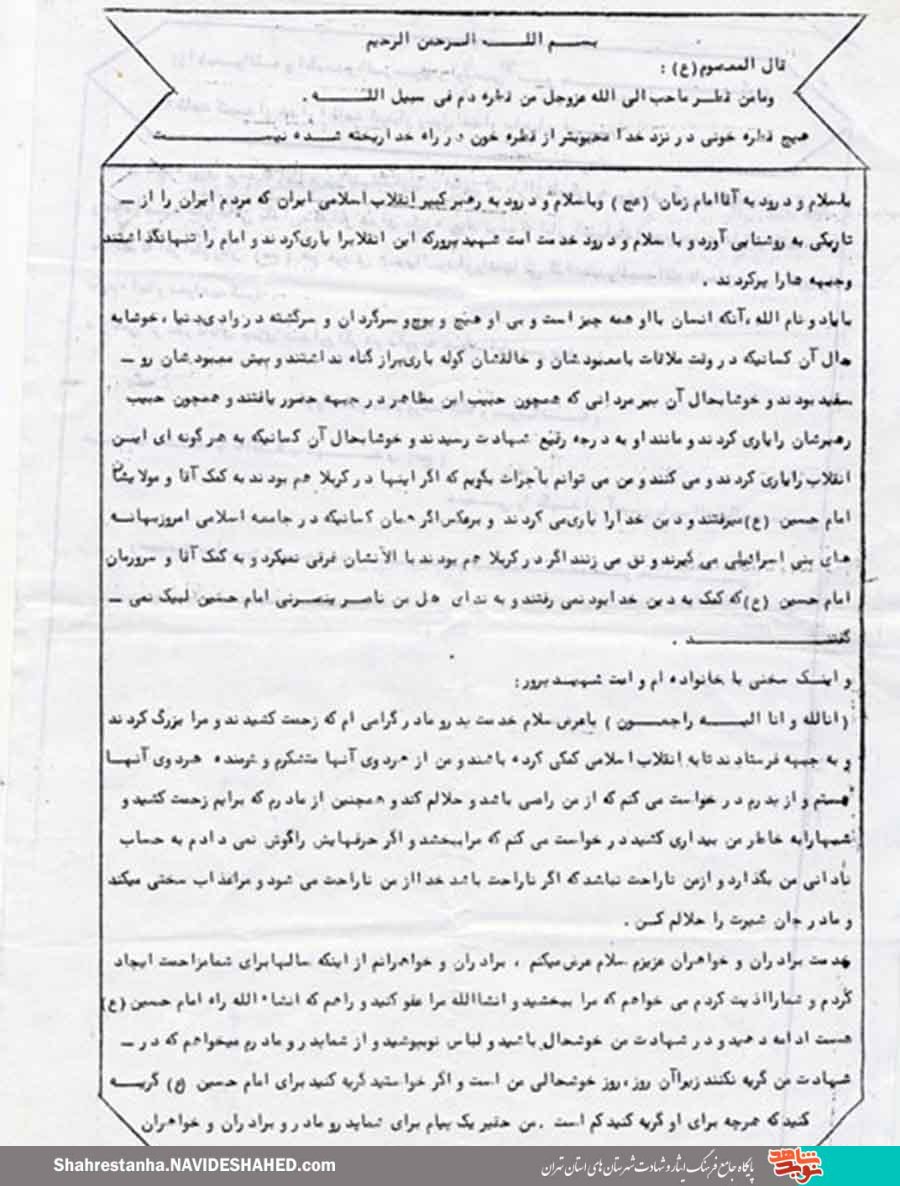 بسم اللـــه الرحمن الرحیم
قال المعصوم(ع) :
ومامن قطر ماحب الی الله عزوجل من قطره دم فی سبیل اللـــه .
هیچ قطره خونی در نزد خدا محبوبتر از قطره خون در راه خدا ریخته شده نیســـت
باسلام و درود به آقاامام زمان (عج ) وباسلام و درود به رهبر کبیر انقلاب اسلامی ایران که مردم ایران را از ـ
تاریکی به روشنایی آورد و با سلام و درود خدمت امت شهیدپرورکه این انقلابرا یاری کردند و امام را تنهانگذاشتند
وجبهه هارا پرکردند .
بایاد و نام الله ،آنکه انسان بااو همه چیز است و بی او هیچ و پوچ و سرگردان و سرگشته در وادی دنیا ، خوشابه
حال آن کسانیکه در وقت ملاقات بامعبودشان و خالقشان کوله باری پراز گناه نداشتند و پیش معبودشان رو ـ
سفید بودند و خوشابحال آن پیرمردانی که همچون حبیب ابن مظاهر در جبهه حضور یافتند و همچون حبیب
رهبرشان رایاری کردند و مانند او به درجه رفیع شهادت رسیدند و خوشابحال آن کسانیکه به هرگونه ای ایـن
انقلاب رایاری کردند و می کنند و من می توانم باجرات بگویم که اگر اینها در کربلا هم بودند به کمک آقا و مولایشان
امام حسین (ع)میرفتند و دین خدارا یاری می کردند و برعکس اگر همان کسانیکه در جامعه اسلامی امروزبهانـه
های بنی اسرائیلی می گیرند و نق می زنند اگر در کربلا هم بودند با الآنشان فرقی نمیکرد و به کمک آقا و سرورمان
امام حسین (ع)که کمک به دین خدابود نمی رفتند و به ندای هل من ناصر ینصرنی امام حسین لبیک نمی ـ
گفتنـــــــــد .
و اینـک سخنی با خانواده ام و امت شهیـد پرور:
(انالله و انا الیـــه راجعـــون ) باعرض سلام خدمت پدرو مادر گرامی ام که زحمت کشیدند و مرا بزرگ کردند
و به جبهه فرستادند تابه انقلاب اسلامی کمکی کرده باشند و من از هردوی آنها متشکرم و شرمنده هردوی آنهـا
هستم و از پدرم درخواست می کنم که از من راضی باشد و حلالم کند و همچنین از مادرم که برایم زحمت کشید و
شبهارابه خاطر من بیداری کشید درخواست می کنم که مراببخشد و اگر حرفهایش راگوش نمی دادم به حساب
نادانی من بگذارد و ازمن ناراحت نباشد که اگر ناراحت باشد خدااز من ناراحت می شود و مراعذاب سختی میکند
و مادرجان شیرت را حلالم کـن .
خدمت برادران و خواهران عزیزم سلام عرض میکنم ، برادران و خواهرانم از اینکه سالهابرای شمامزاحمت ایجاد
کردم و شمارااذیت کردم می خواهم که مرا ببخشید و انشاالله مرا عفو کنید و راهم که انشاءالله راه امام حسین (ع)
هست ادامه دهید و در شهادت من خوشحال باشید و لباس نوبپوشید و از شماپدر و مادرم میخواهم که در ـ
شهادت من گریه نکنند زیراآن روز ،روز خوشحالی من است و اگر خواستید گریه کنید برای امام حسین (ع) گریـه
کنید که هرچه برای او گریه کنید کم است .من حقیر یک پیام برای شماپدرو مادر و برادران و خواهران
Shahrestanha.NAVIDESHAHED.com
پایگاه جامع فرهنگ ایثار و شهادت شهرستان های استان تهران
نوید شاهد